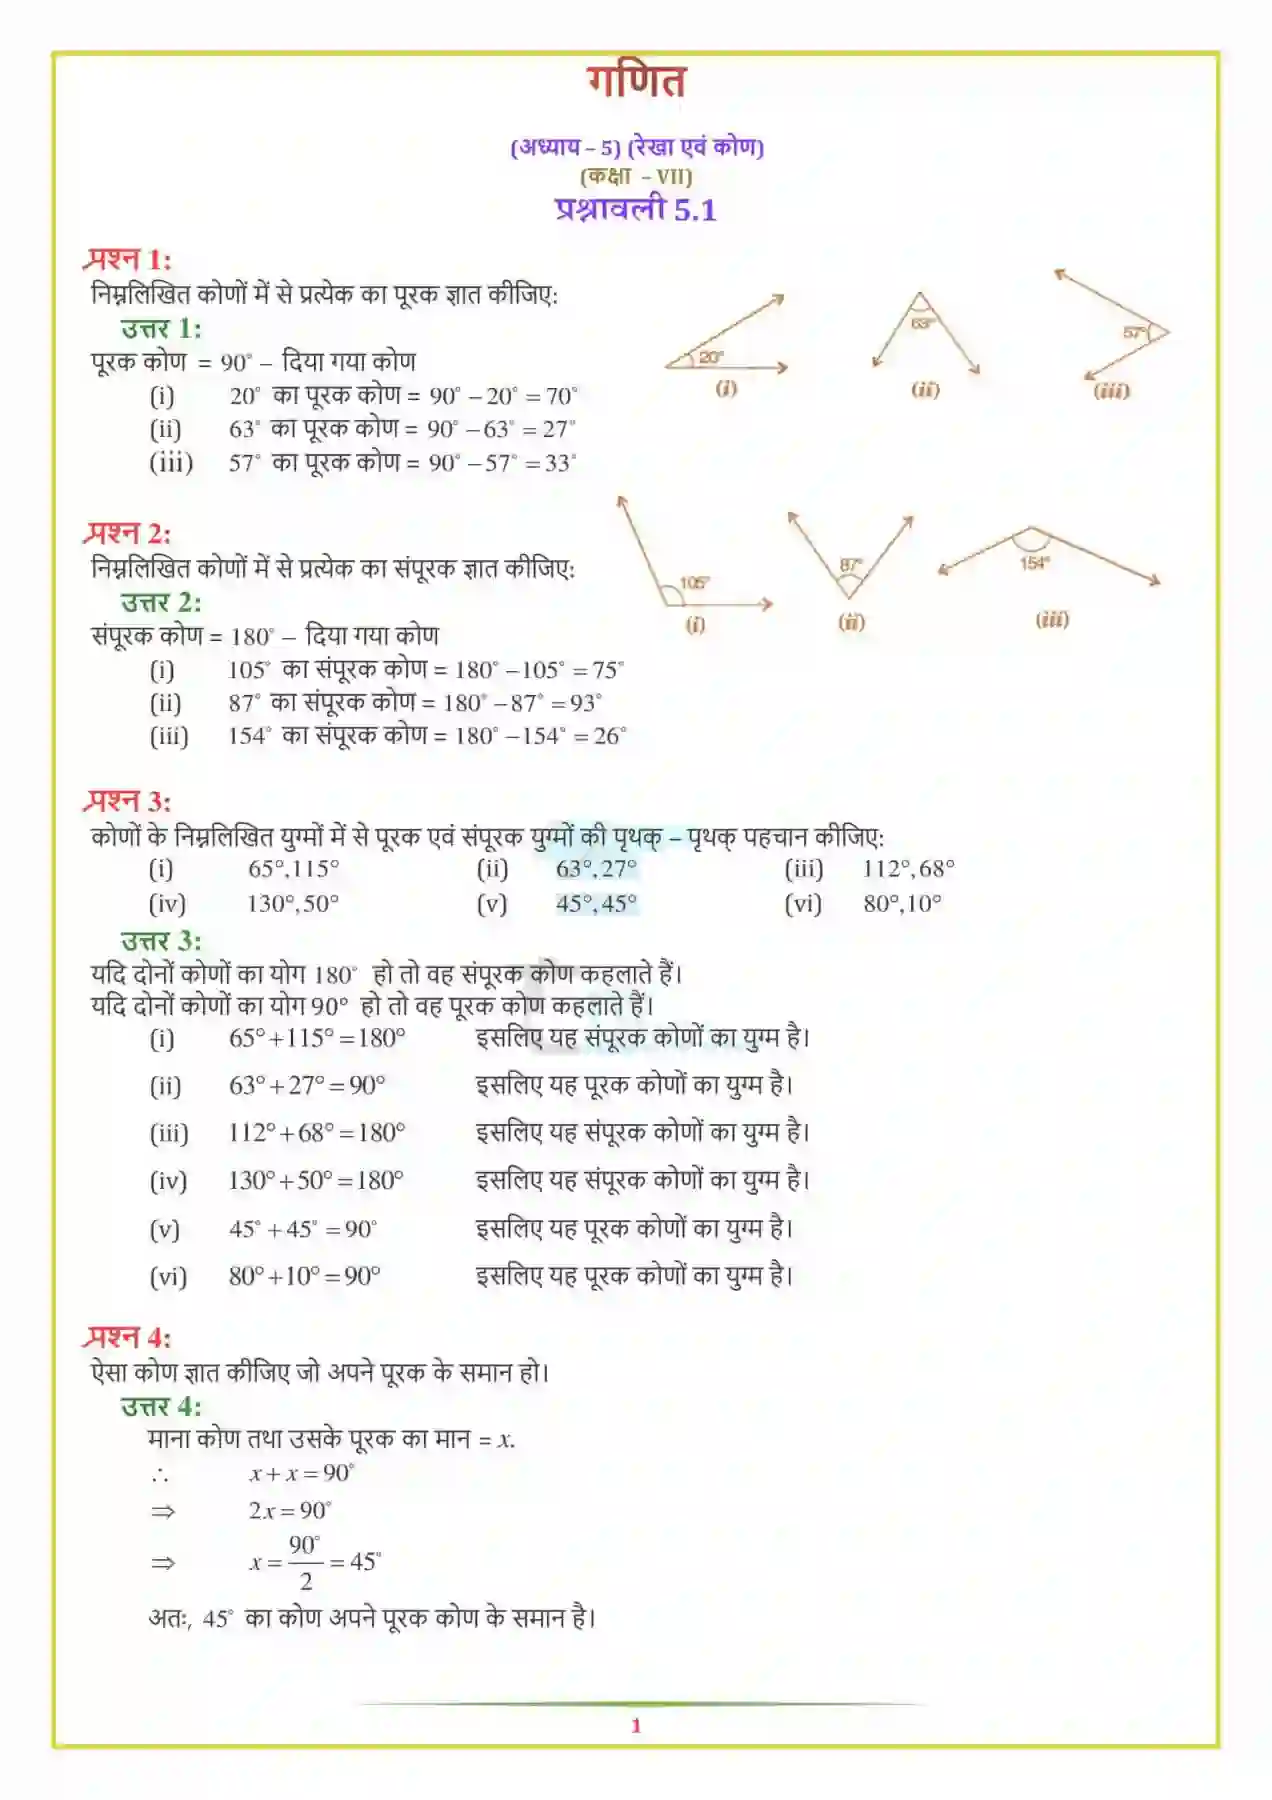 गणित
(अध्याय – 5) (रेखा एवं कोण)
(कक्षा – VII)
प्रश्नावली 5.1
प्रश्न 1:
निम्नलिखित कोणों में से प्रत्येक का पूरक ज्ञात कीजिए:
उत्तर 1:
पूरक कोण = 90° – दिया गया कोण
(i) 20° का पूरक कोण = 90° – 20° = 70°
(ii) 63° का पूरक कोण = 90° – 63° = 27°
(iii) 57° का पूरक कोण = 90° – 57° = 33°
20° 63° 57°
(i) (ii) (iii)
प्रश्न 2:
निम्नलिखित कोणों में से प्रत्येक का संपूरक ज्ञात कीजिए:
उत्तर 2:
संपूरक कोण = 180° – दिया गया कोण
(i) 105° का संपूरक कोण = 180° – 105° = 75°
(ii) 87° का संपूरक कोण = 180° – 87° = 93°
(iii) 154° का संपूरक कोण = 180° – 154° = 26°
105° 87° 154°
(i) (ii) (iii)
प्रश्न 3:
कोणों के निम्नलिखित युग्मों में से पूरक एवं संपूरक युग्मों की पृथक् – पृथक् पहचान कीजिए:
(i) 65°,115° (ii) 63°,27° (iii) 112°,68°
(iv) 130°,50° (v) 45°,45° (vi) 80°,10°
उत्तर 3:
यदि दोनों कोणों का योग 180° हो तो वह संपूरक कोण कहलाते हैं।
यदि दोनों कोणों का योग 90° हो तो वह पूरक कोण कहलाते हैं।
(i) 65° + 115° = 180° इसलिए यह संपूरक कोणों का युग्म है।
(ii) 63° + 27° = 90° इसलिए यह पूरक कोणों का युग्म है।
(iii) 112° + 68° = 180° इसलिए यह संपूरक कोणों का युग्म है।
(iv) 130° + 50° = 180° इसलिए यह संपूरक कोणों का युग्म है।
(v) 45° + 45° = 90° इसलिए यह पूरक कोणों का युग्म है।
(vi) 80° + 10° = 90° इसलिए यह पूरक कोणों का युग्म है।
प्रश्न 4:
ऐसा कोण ज्ञात कीजिए जो अपने पूरक के समान हो।
उत्तर 4:
माना कोण तथा उसके पूरक का मान = x.
∴ x + x = 90°
⇒ 2x = 90°
⇒ x = 90°/2 = 45°
अतः, 45° का कोण अपने पूरक कोण के समान है।
1